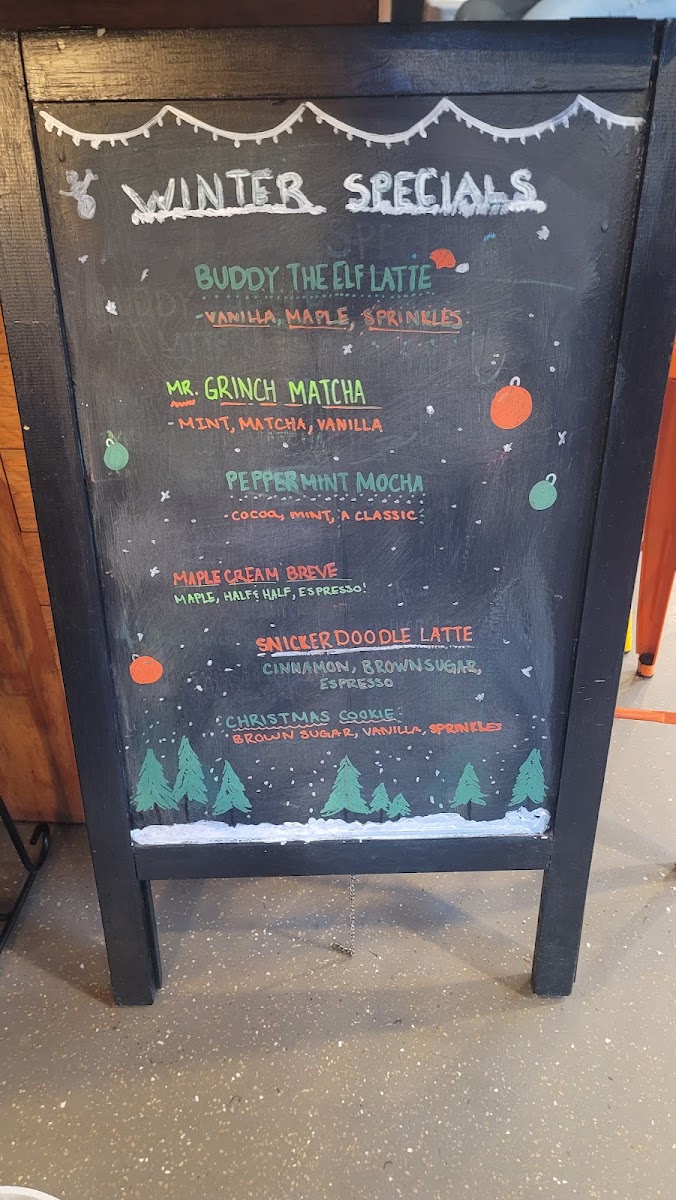 WINTER SPECIALS
BUDDY THE ELF LATTE
-VANILLA, MAPLE, SPRINKLES
MR. GRINCH MATCHA
- MINT, MATCHA, VANILLA
PEPPERMINT MOCHA
- COCOA, MINT, A CLASSIC
MAPLE CREAM BREVE
MAPLE, HALF & HALF, ESPRESSO!
SNICKERDOODLE LATTE
CINNAMON, BROWN SUGAR,
ESPRESSO
CHRISTMAS COOKIE
BROWN SUGAR, VANILLA, SPRINKLES